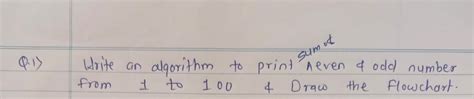 Q.1) Write an algorithm to print sum of even & odd number
from 1 to 100 & Draw the flowchart.